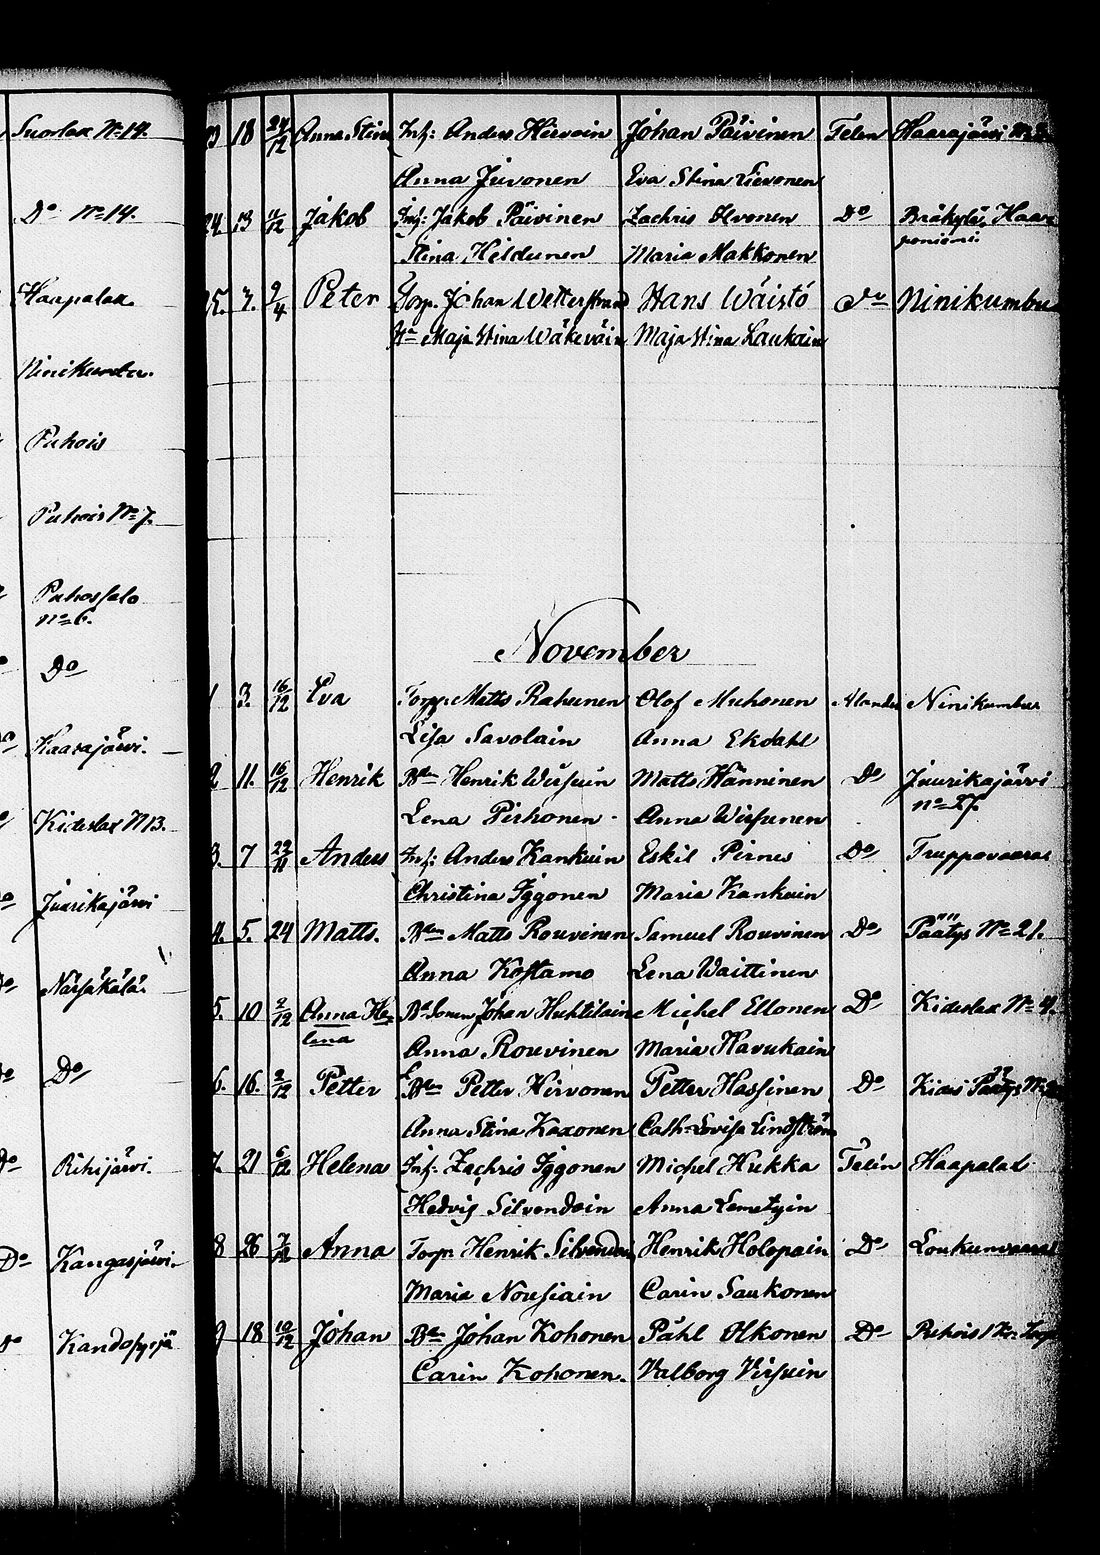 Suorlax N:o 14.
Do N:o 14.
Haapalax.
Ninikumbu.
Puhois
Puhois N:o 7.
Puhossalo
n:o 6.
Do
Haarajärvi.
Kideslax N 13.
Juurikajärvi
Närsäkälä.
Do
Riihijärvi.
Kangasjärvi.
Kandopyejä
23 18 24/12 Anna Stina Inh: Anders Hirvoin Johan Päivinen Telen Haarajärvi
Anna Juvonen Eva Stina Lievonen
24. 13 11/12 Jakob Inh: Jakob Päivinen Zachris Ikonen Do Bräkylä, Haara
poniemi
25. 7. 9/4 Peter Torp. Johan Wetterstrand Hans Wäistö Do Ninikumbu
H:a Maja Stina Wäkeväin Maja Stina Laukain
November
1 3. 16/12 Eva Torp. Matts Rahunen Olof Muhonen Alander Ninikumbu
Lisa Savolain Anna Ekdahl
2 11. 16/12 Henrik B:den Henrik Wirsuin Matts Hänninen Do Juurikajärvi
n:o 27.
Lena Pirhonen Anna Wirsunen
3. 7 22/11 Anders Inh: Anders Kankuin Eskil Pirnes Do Truppovaara
Christina Iggonen Maria Kankuin
4. 5. 24 Matts. B:den Matts Rouvinen Samuel Rouvinen Do Päätys N:o 21.
Anna Kostamo Lena Waittinen
5. 10 2/12 Anna He B:de Sonen Johan Huhtilain Michel Ellonen Do Kideslax N:o 4.
lena
Anna Rouvinen Maria Havukain
6. 16. 2/12 Petter B:den Petter Hirvonen Petter Hassinen Do Kides Päätys
Anna Stina Kaxonen Cath: Lovisa Lindström
7. 21 6/12 Helena Inh: Zachris Iggonen Michel Hukka Telén Haapalax
Hedvig Silvendoin Anna Lemetyin
8 26 7/12 Anna Torp. Henrik Silvendoin Henrik Holopain Do Loukunvaara
Maria Nousiain Carin Saukonen
9 18 10/12 Johan B:den Johan Kohonen Påhl Olkonen Do Puhois
Carin Kohonen. Valborg Virsuin